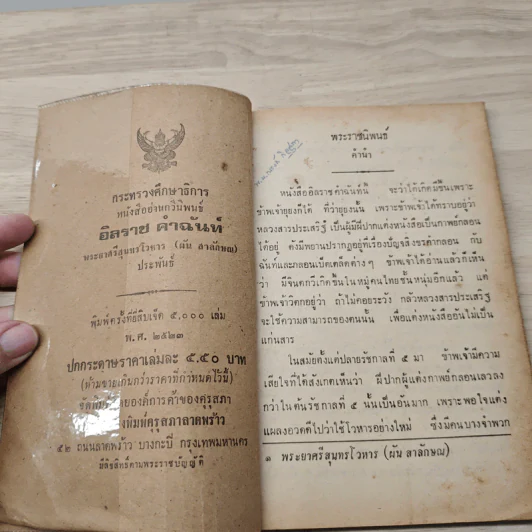 กระทรวงศึกษาธิการ
หนังสืออ่านกวีนิพนธ์
อิลราช คำฉันท์
พระยาศรีสุนทรโวหาร (ผัน สาลักษณ)
ประพันธ์
พิมพ์ครั้งที่ยี่สิบเจ็ด ๕,๐๐๐ เล่ม
พ.ศ. ๒๕๒๓
ปกกระดาษราคาเล่มละ ๕.๕๐ บาท
(ห้ามขายเกินกว่าราคาที่กำหนดไว้นี้)
องค์การค้าของคุรุสภา
พิมพ์คุรุสภาลาดพร้าว
ถนนลาดพร้าว บางกะปิ กรุงเทพมหานคร
มีลิขสิทธิ์ตามพระราชบัญญัติ
พระราชนิพนธ์
คำนำ
หนังสืออิลราชคำฉันท์นี้ จะว่าได้เกิดมีขึ้นเพราะ
ข้าพเจ้ายุยงก็ได้ ที่ว่ายุยงนั้น เพราะข้าพเจ้าได้ทราบอยู่ว่า
หลวงสารประเสริฐ ๑ เป็นผู้มีฝีปากแต่งหนังสือเป็นกาพย์กลอน
ได้อยู่ ดังมีพยานปรากฏอยู่ที่เรื่องเบญจสิงขรคำกลอน กับ
ฉันท์และกลอนเบ็ดเตล็ดต่างๆ ข้าพเจ้าได้อ่านแล้วก็รู้สึก
ว่า มีจินตกวีเกิดขึ้นในหมู่คนไทยชั้นหนุ่มอีกแล้ว แต่
ข้าพเจ้าวิตกอยู่ว่า ถ้าไม่คอยระวัง กลัวหลวงสารประเสริฐ
จะใช้ความสามารถของตนนั้น เพื่อแต่งหนังสืออันไม่เป็น
แก่นสาร
ในสมัยตั้งแต่ปลายรัชกาลที่ ๕ มา ข้าพเจ้ามีความ
เสียใจที่ได้สังเกตเห็นว่า ฝีปากผู้แต่งกาพย์กลอนเลวลง
กว่าในต้นรัชกาลที่ ๕ นั้นเป็นอันมาก เพราะพอใจแต่ง
แผลงอวดดีไปว่าใช้โวหารอย่างใหม่ ซึ่งมีคนบางจำพวก
๑ พระยาศรีสุนทรโวหาร (ผัน สาลักษณ)